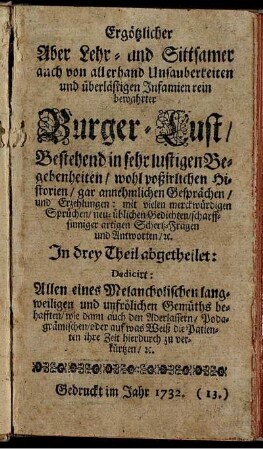 Ergötzlicher
Aber Lehr- und Sittsamer
auch von allerhand Unsauberkeiten
und überlästigen Infamien rein
bewahrter
Burger-Lust/
Bestehend in sehr lustigen Be-
gebenheiten/ wohl poßirlichen Hi-
storien/ gar annehmlichen Gesprächen/
und Erzehlungen: mit vielen merckwürdigen
Sprüchen/ neu-üblichen Gedichten/scharff-
sinniger artigen Schertz-Fragen
und Antworten/ ꝛc.
In drey Theil abgetheilet:
Dedicirt:
Allen eines Melancholischen lang-
weiligen und unfrölichen Gemüths be-
hafften/ wie dann auch den Aderlassern/ Poda-
grämischen/oder auf was Weiß die Patien-
ten ihre Zeit hierdurch zu ver-
kürtzen/ ꝛc.
Gedruckt im Jahr 1732. (13.)